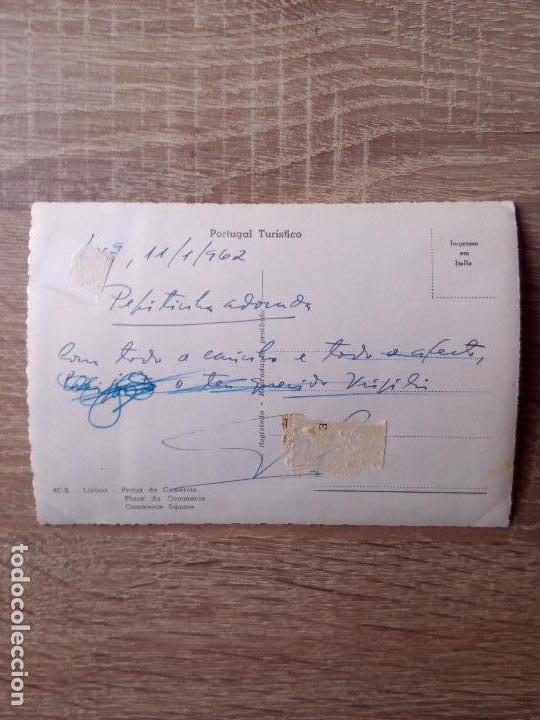 Portugal Turístico
Impresso
em
Italia
11/1/962
Pepitinha adorada
Com todo o carinho e todo o afecto,
o teu querido Virgilio
Registado - Reprodução proibida
E
Lisboa - Praça do Comércio
Place du Commerce
Commerce Square
todocoleccion.net